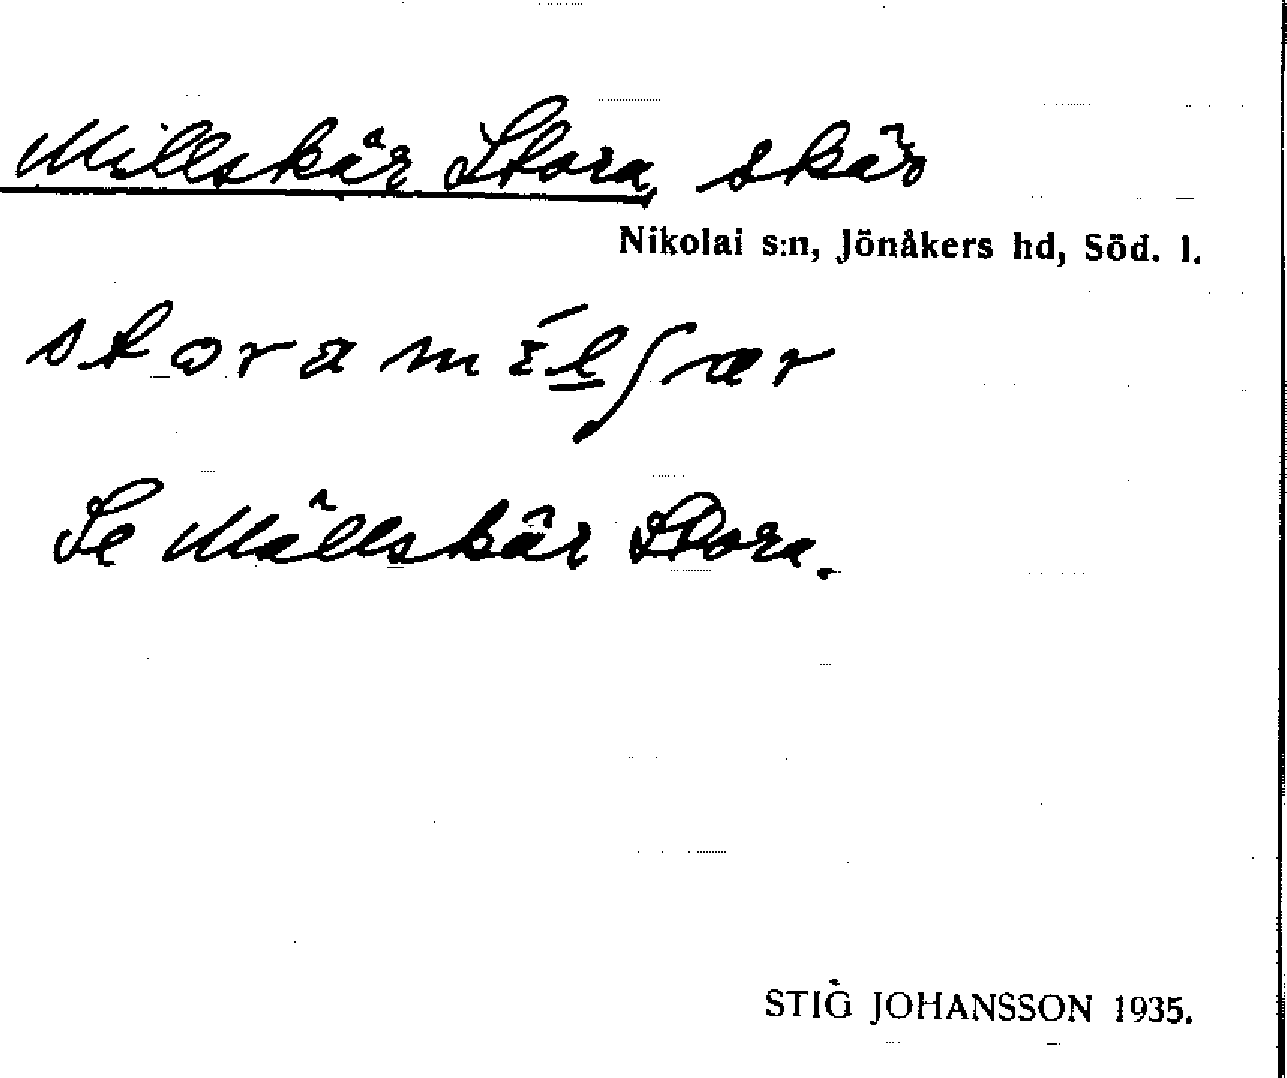 Millskär Stora, skär
Nikolai s:n, Jönåkers hd, Söd. l.
Se Mällskär Stora.
STIG JOHANSSON 1935.